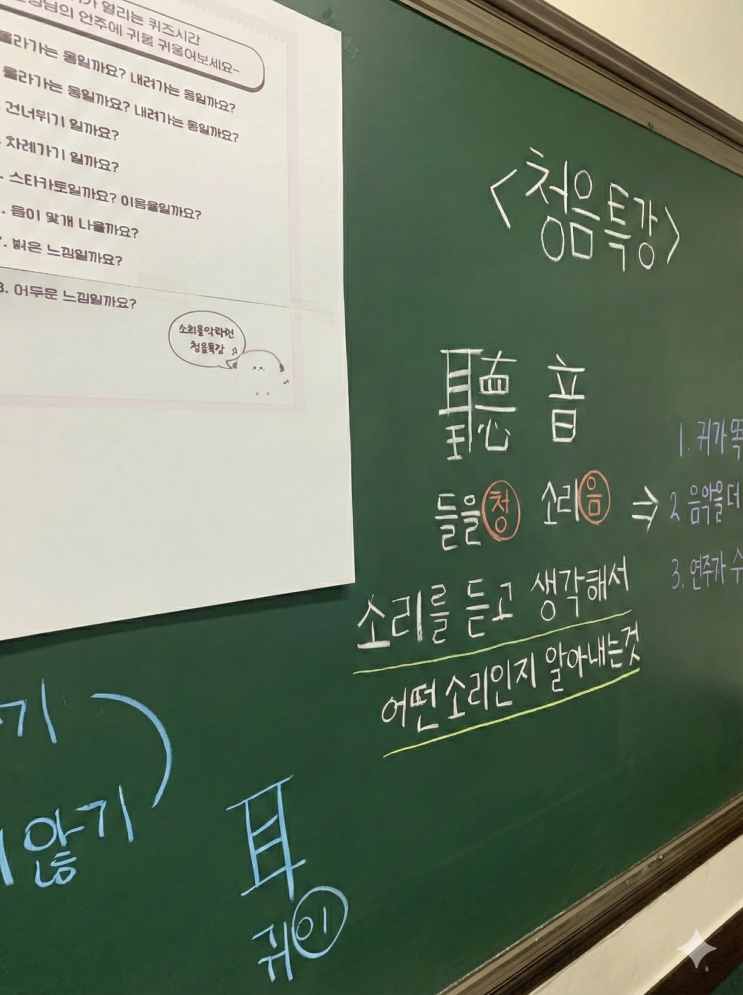 열리는 퀴즈시간
연주에 귀를 귀울여보세요~
올라가는 음일까요? 내려가는 음일까요?
올라가는 음일까요? 내려가는 음일까요?
건너뛰기 일까요?
차례가기 일까요?
스타카토일까요? 이음줄일까요?
음이 몇개 나올까요?
밝은 느낌일까요?
8. 어두운 느낌일까요?
청음특강
<청음특강>
聽 音
들을 청 소리 음 ⇒
소리를 듣고 생각해서
어떤 소리인지 알아내는것
1. 귀가
2 음악을 더
3. 연주자
기
않기
耳
귀 이